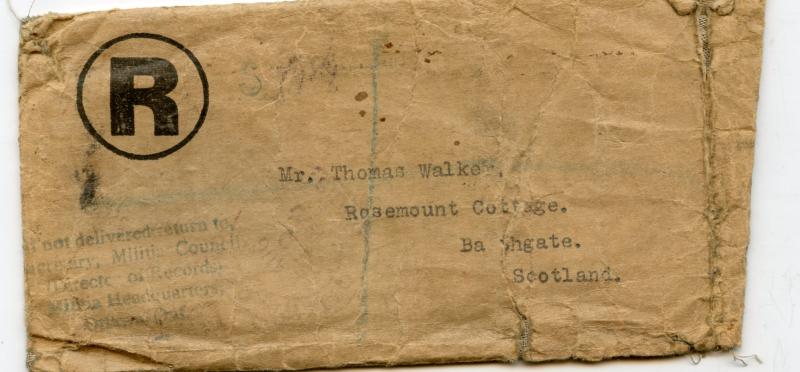 R
Mr. Thomas Walker.
Rosemount Cottage.
Ba hgate.
Scotland.
not delivered return to,
Militia Council
of Records)
Militia Headquarters,
Ottawa, Ont.